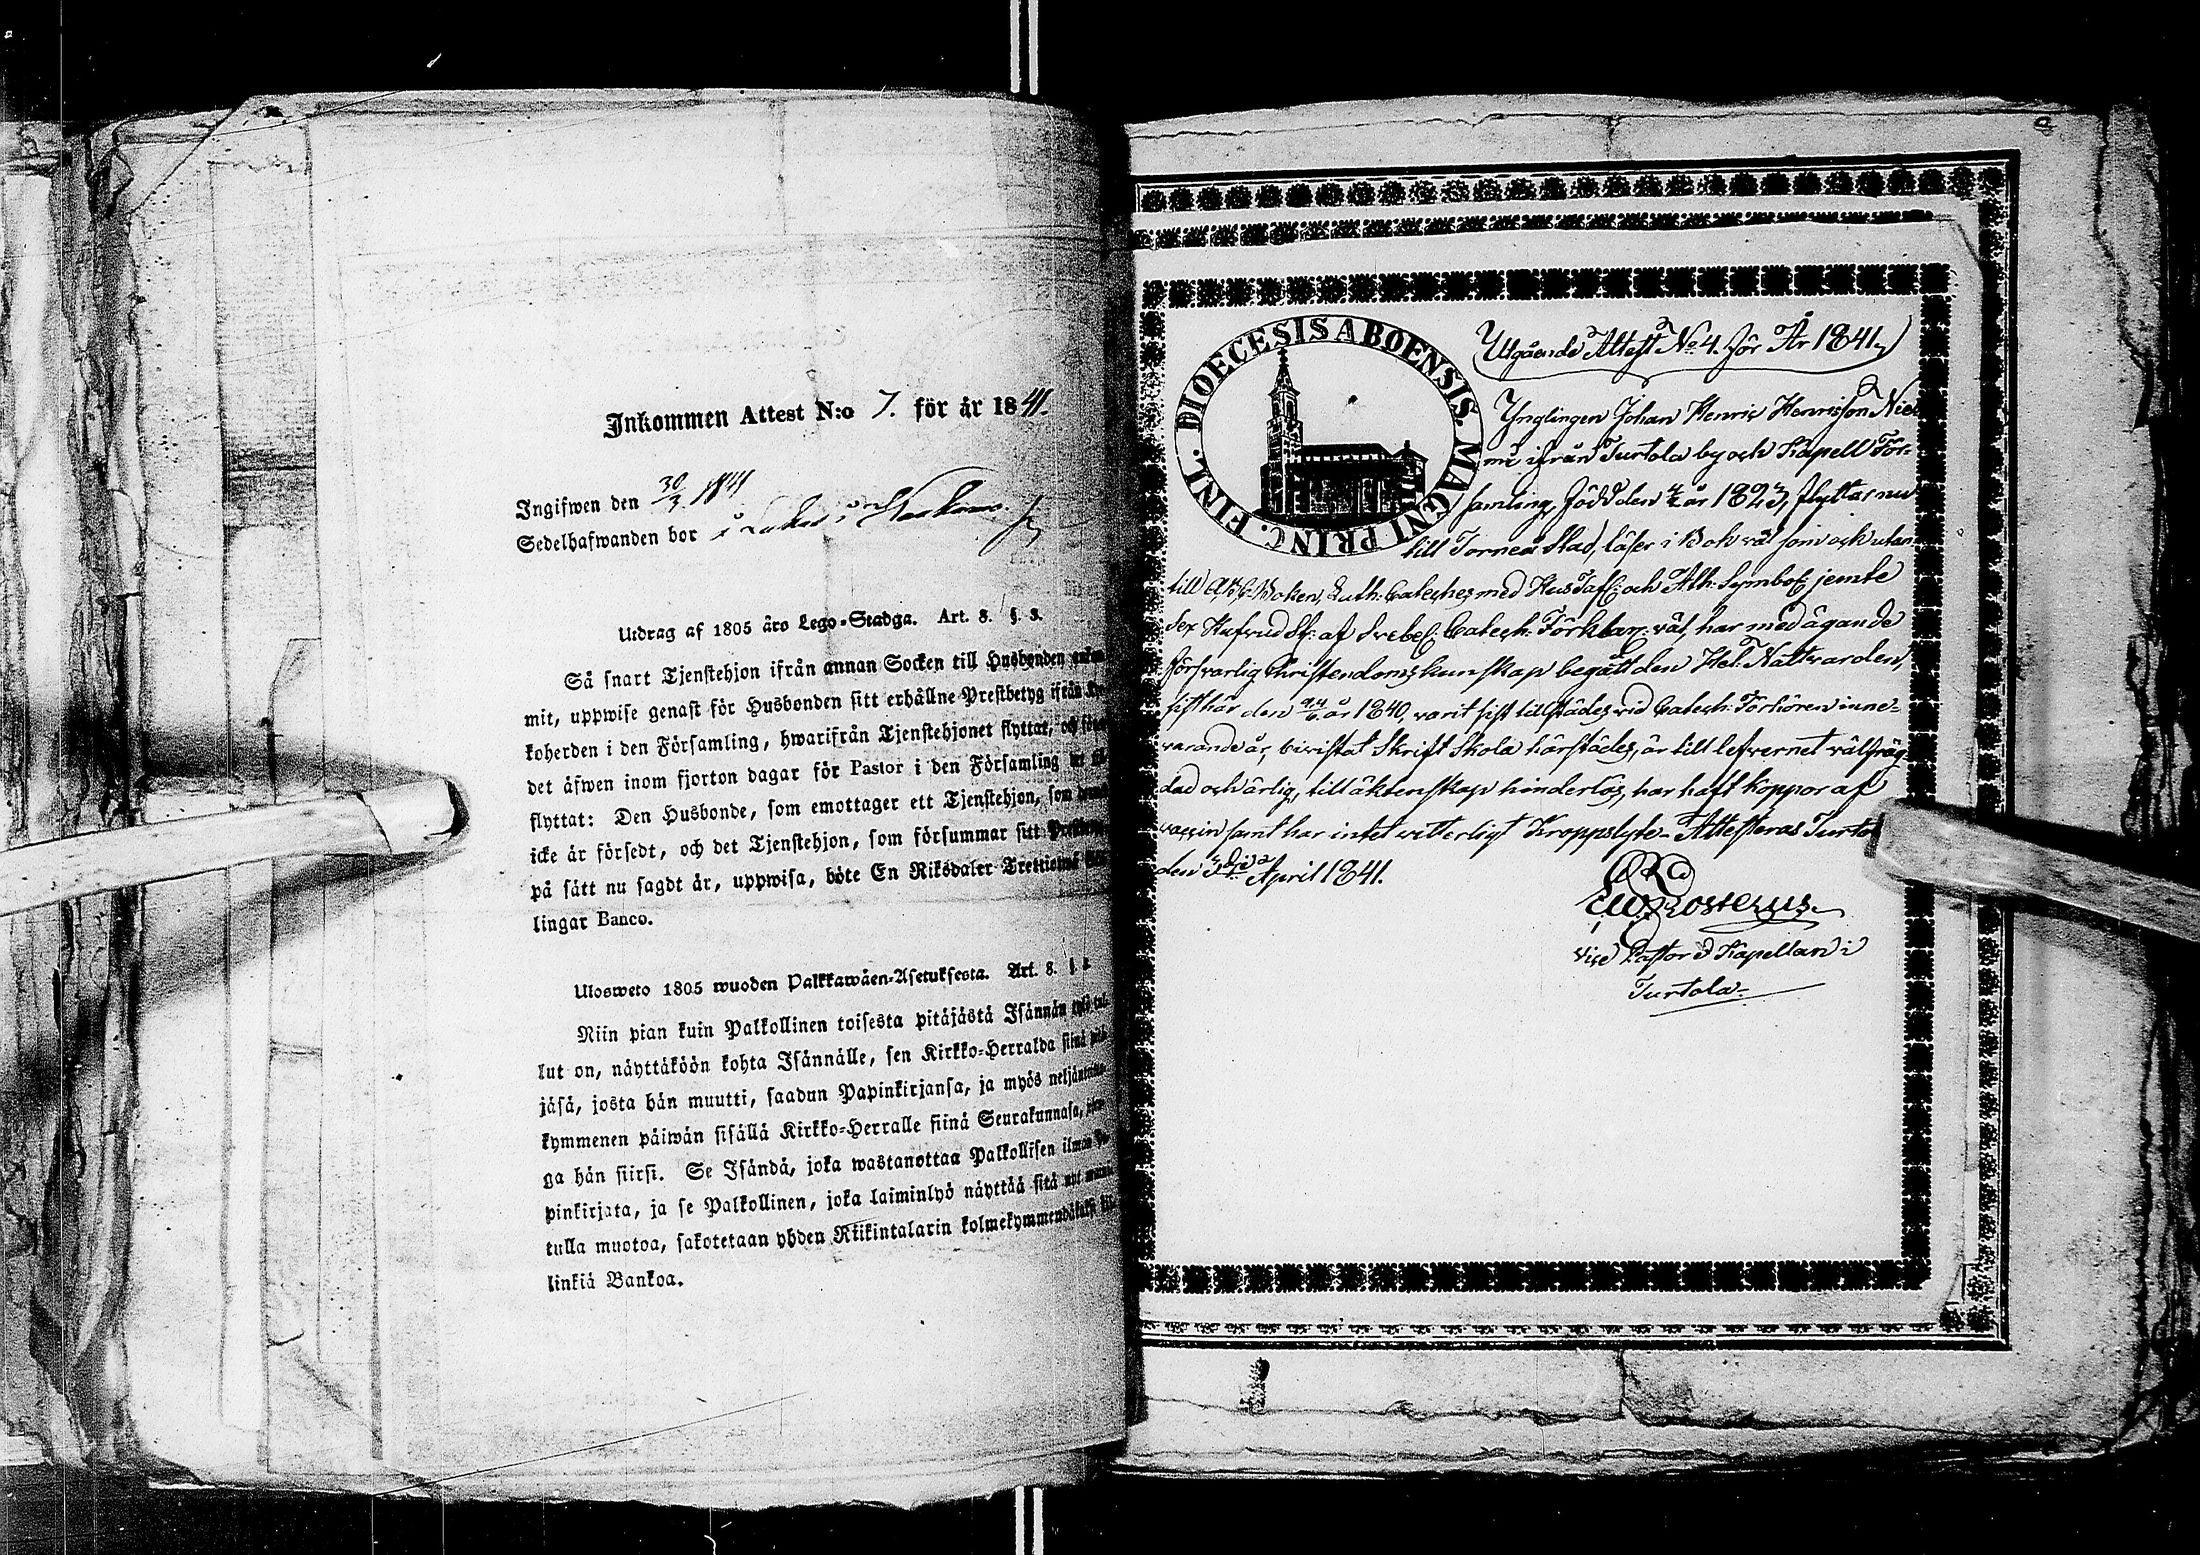 Inkommen Attest N:o 7. för år 1841.
Ingifwen den 30/3 1841
Sedelhafwanden bor i
Utdrag af 1805 års Lego-Stadga. Art. 8. §. 3.
Så snart Tjenstehjon ifrån annan Socken till Husbonden
mit, uppwise genast för Husbonden sitt erhållne Prestbetyg ifrån
koherden i den Församling, hwarifrån Tjenstehjonet flyttat, och
det äfwen inom fjorton dagar för Pastor i den Församling
flyttat: Den Husbonde, som emottager ett Tjenstehjon, som
icke är försedt, och det Tjenstehjon, som försummar sitt
på sätt nu sagdt är, uppwisa, böte En Riksdaler Trettio
lingar Banco.
Ulosweto 1805 wuoden Palkkawäen-Asetuksesta. Art. 8. §. 3.
Niin pian kuin Palkollinen toisesta pitäjästä Isännän
lut on, näyttäköön kohta Isännälle, sen Kirkko-Herralda siinä
jäsä, josta hän muutti, saadun Papinkirjansa, ja myös
kymmenen päiwän sisällä Kirkko-Herralle siinä Seurakunnasa,
ga hän siirsi. Se Isändä, joka wastanottaa Palkollisen ilman
pinkirjata, ja se Palkollinen, joka laiminlyö näyttää sitä nyt
tulla muotoa, sakotetaan yhden Riikintalarin kolmekymmendäkaksi
linkiä Bankoa.
DIOECESIS ABOENSIS. MAGNI PRINC. FINL.
Utgående Attest No 4. för År 1841.
Ynglingen Johan Henric Henricsson Nie
mi ifrån Turtola by och Kapell För-
samling, född den år 1823, flyttar nu
till Torneå Stad, läser i Bok väl som och utan
till A,B,C,Boken, Luth: Cateches med HusTafl: och Ath: Symbol: jemte
Sex Hufvud St: af Svebel: Catech: Förklar: väl, har med ägande
försvarlig Christendomskunskap begått den Hel: Nattvarden,
sist här den år 1840, varit sist tillstädes vid Catech: Förhören inne-
varande år, bivistat Skrift Skola härstädes, är till lefvernet välfräg
dad och ärlig, till äktenskap hinderlös, har haft koppor af
vaccin samt har intet vitterligt Kroppslyte. Attesteras Turtola
den April 1841.
Vice Pastor & Kapellan i
Turtola.